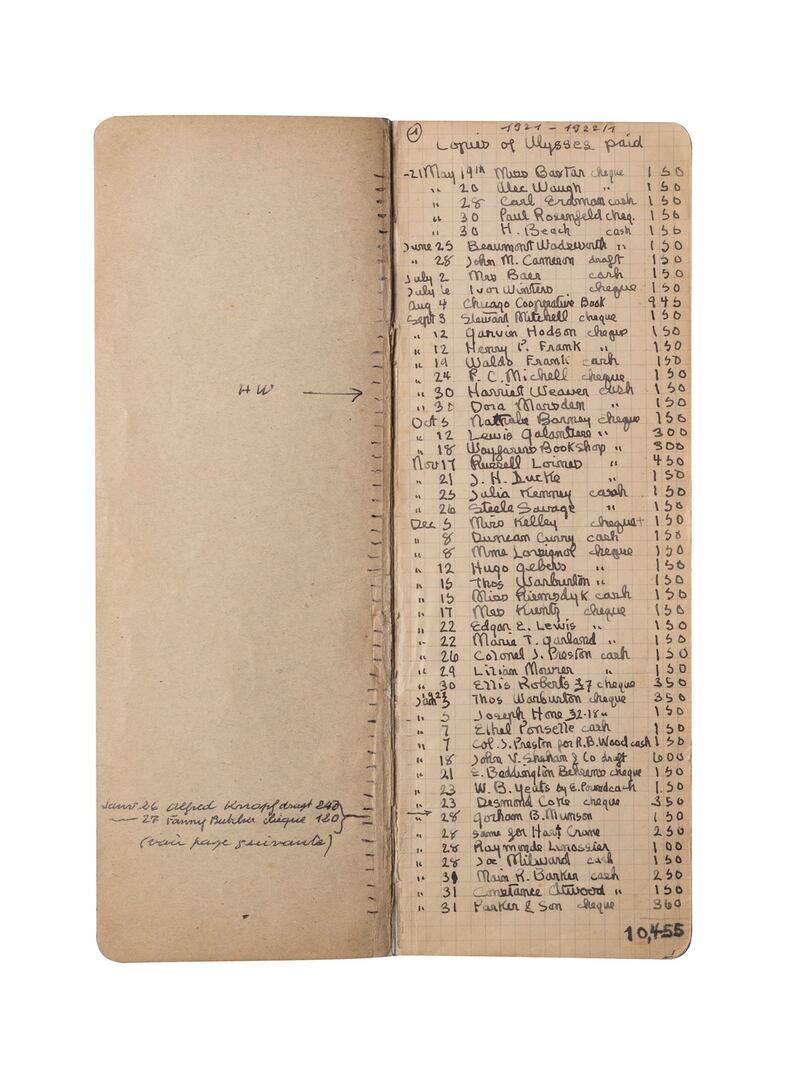 HW →
Janv 26 Alfred Knopf draft 240
— 27 Fanny Butcher cheque 120
(voir page suivante)
① 1921 - 1922/1
Copies of Ulysses paid
-21 May 19th Miss cheque 150
" 20 Alec Waugh " 150
" 28 Carl Erdman cash 150
" 30 Paul Rosenfeld cheq. 150
" 30 H. Beach cash 150
June 25 Beaumont Wadsworth " 150
" 28 John M. Cameron draft 150
July 2 Mrs Baer cash 150
July 6 Ivor Winters cheque 150
Aug 4 Chicago Cooperative Book 945
Sept 3 Stewart Mitchell cheque 150
" 12 Garvin Hodson cheque 150
" 12 Henry P. Frank " 150
" 19 Waldo Frank cash 150
" 24 P. C. Michell cheque 150
" 30 Harriet Weaver cash 150
" 30 Dora Marsden " 150
Oct 5 Nathalie Barney cheque 150
" 12 Lewis Galantiere " 300
" 18 Wayfarers Bookshop " 300
Nov 17 Russell Loines " 450
" 21 J. H. 150
" 25 Julia Kenney cash 150
" 26 Steele Savage " 150
Dec 5 Miss Kelley cheque 150
" 8 Duncan Curry cash 150
" 8 Mme cheque 150
" 12 Hugo " 150
" 15 Thos Warburton " 150
" 15 Miss Riemsdyk cash 150
" 17 Mrs Kuntz cheque 150
" 22 Edgar E. Lewis " 150
" 22 Marie T. Garland " 150
" 26 Colonel J. Preston cash 150
" 29 Lilian Mowrer " 150
" 30 Ellis Roberts 37 cheque 350
Jan 3 Thos Warburton cheque 350
" 5 Joseph Hone 32-18 " 150
" 7 Ethel Ponselle cash 150
" 7 Col. J. Preston for R.B. Wood cash 150
" 18 John V. Sheehan & Co draft 600
" 21 E. Beddington Behrens cheque 150
" 23 W. B. Yeats by E. Pound cash 150
" 23 Desmond Coke cheque 350
→ 28 Gorham B. Munson " 150
" 28 same for Hart Crane 250
" 28 Raymonde Linossier 100
" 28 Joe Milward cash 150
" 31 R. Barker cash 250
" 31 Constance Atwood " 150
" 31 Parker & Son cheque 360
10,455